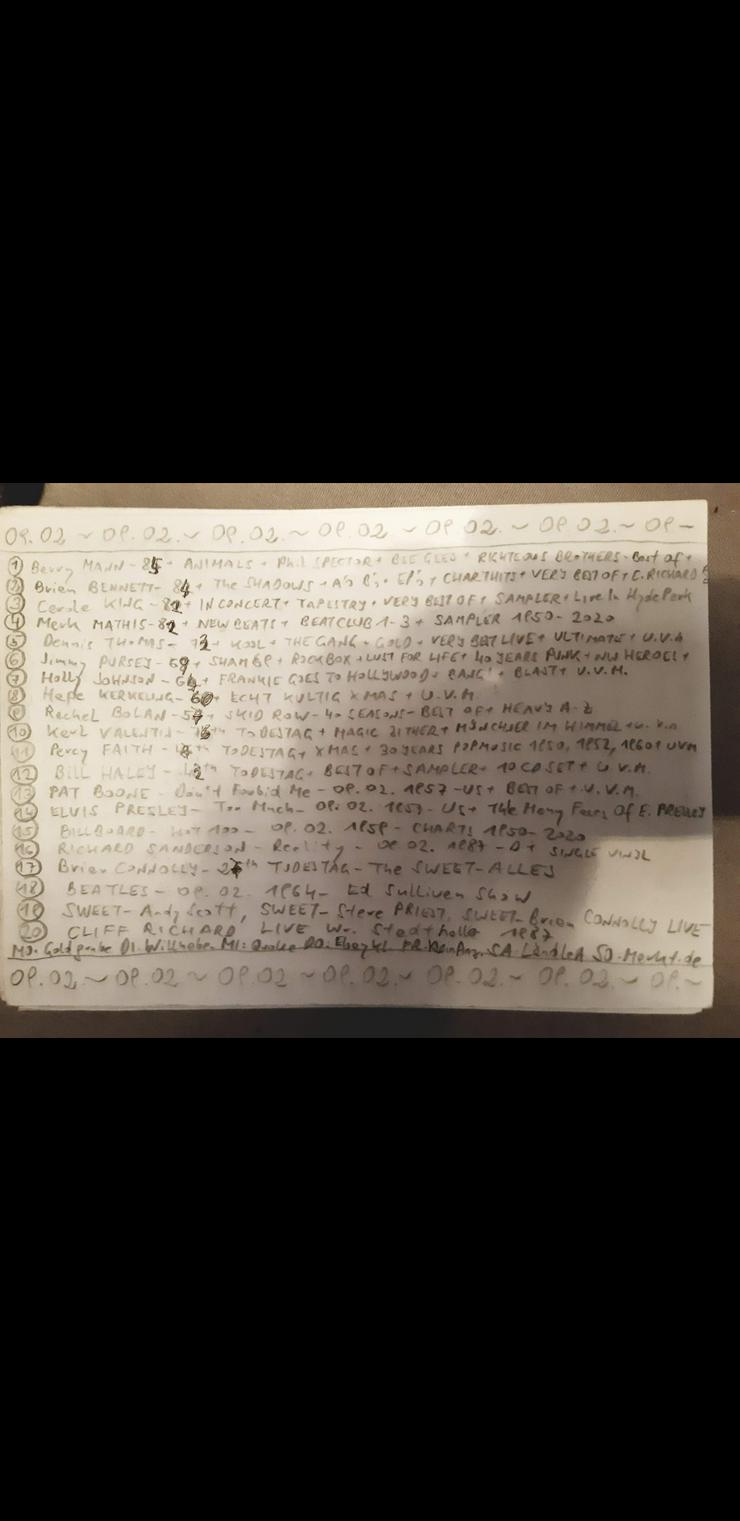 09.02 ~ 09.02. ~ 09.02. ~ 09.02 ~ 09.02. ~ 09.02. ~ 09-
1 Berry MANN - 85 + ANIMALS + Phil SPECTOR + BEE GEES + RIGHTEOUS BROTHERS - Best of +
2 Brien BENNETT - 84 + The SHADOWS + A's B's + EP's + CHARTHITS + VERY BEST OF + C. RICHARD
3 Carole KING - 82 + IN CONCERT + TAPESTRY + VERY BEST OF + SAMPLER + Live In Hyde Park
4 Merk MATHIS - 82 + NEW BEATS + BEATCLUB 1-3 + SAMPLER 1950-2020
5 Dennis THOMAS - 73 + KOOL + THE GANG + GOLD + VERY BEST LIVE + ULTIMATE + U.V.A
6 Jimmy PURSEY - 69 + SHAM 69 + ROCKBOX + LUST FOR LIFE + 40 YEARS PUNK + NU HEROES +
7 Holly JOHNSON - 64 + FRANKIE GOES TO HOLLYWOOD + BANG! + BLAST + U.V.M.
8 Hape KERKELING - 60 + ECHT KULTIG XMAS + U.V.M.
9 Rachel BOLAN - 57 + SKID ROW - 40 SEASONS - BEST OF + HEAVY A-Z
10 Karl VALENTIN - 76th TODESTAG + MAGIC ZITHER + MÜNCHNER IM HIMMEL + U.V.A
11 Percy FAITH - TODESTAG + XMAS + 30 YEARS POPMUSIC 1950, 1952, 1960 + UVM
12 BILL HALEY - TODESTAG + BEST OF + SAMPLER + 10 CD SET + U.V.M.
13 PAT BOONE - Don't Forbid Me - 09.02.1957 - US + BEST OF + U.V.M.
14 ELVIS PRESLEY - Too Much - 09.02.1957 - US + The Many Faces Of E. PRESLEY
15 BILLBOARD - HOT 100 - 09.02.1959 - CHARTS 1950-2020
16 RICHARD SANDERSON - Reality - 09.02.1987 - D + SINGLE VINYL
17 Brian CONNOLLY - TODESTAG - The SWEET - ALLES
18 BEATLES - 09.02.1964 - Ed Sullivan Show
19 SWEET - Andy Scott, SWEET - Steve PRIEST, SWEET Brian CONNOLLY LIVE
20 CLIFF RICHARD LIVE Wr. Stadthalle 1987
MO. Goldgrube DI. Willhaben MI: Quoka DO. Ebay kl FR. SA LändleA SO. Markt.de
09.02. ~ 09.02 ~ 09.02 ~ 09.02. ~ 09.02. ~ 09.02. ~ 09. ~